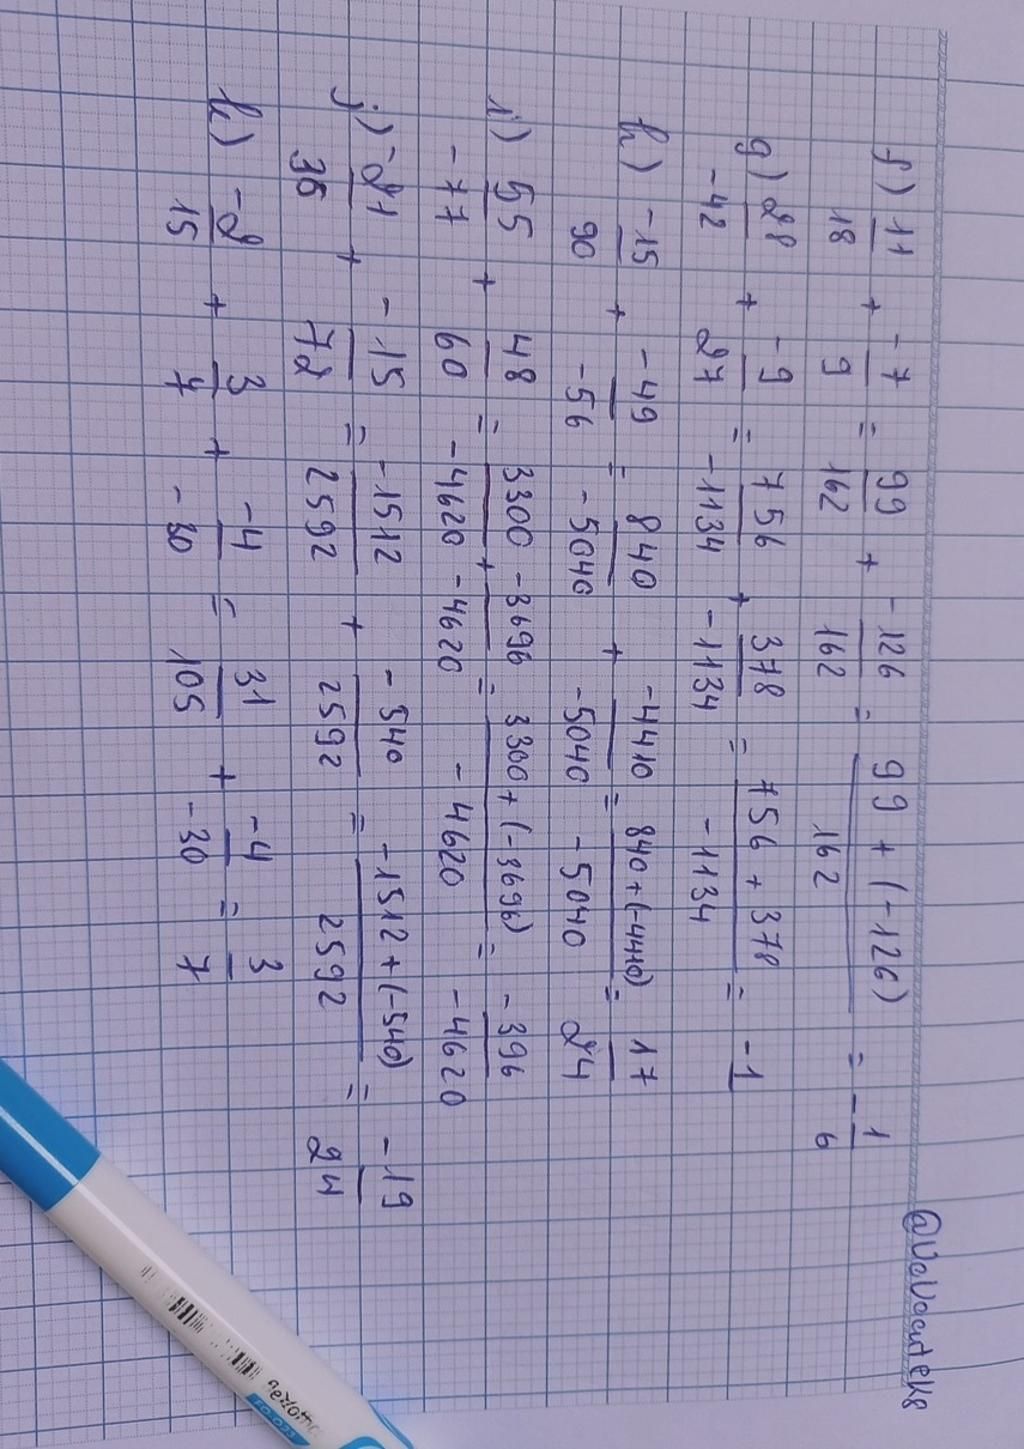 @VeVocuteks
f) 11/18 + -7/9 = 99/162 + -126/162 = 99 + (-126)/162 = -1/6
g) 28/-42 + -9/27 = 756/-1134 + 378/-1134 = 756 + 378/-1134 = -1
h) -15/90 + -49/-56 = 840/-5040 + -4410/-5040 = 840+(-4410)/-5040 = 17/24
i) 55/-77 + 48/60 = 3300/-4620 + -3696/-4620 = 3300+(-3696)/-4620 = -396/-4620
j) -21/36 + -15/72 = -1512/2592 + -540/2592 = -1512+(-540)/2592 = -19/24
k) -2/15 + 3/7 + -4/-30 = 31/105 + -4/-30 = 3/7